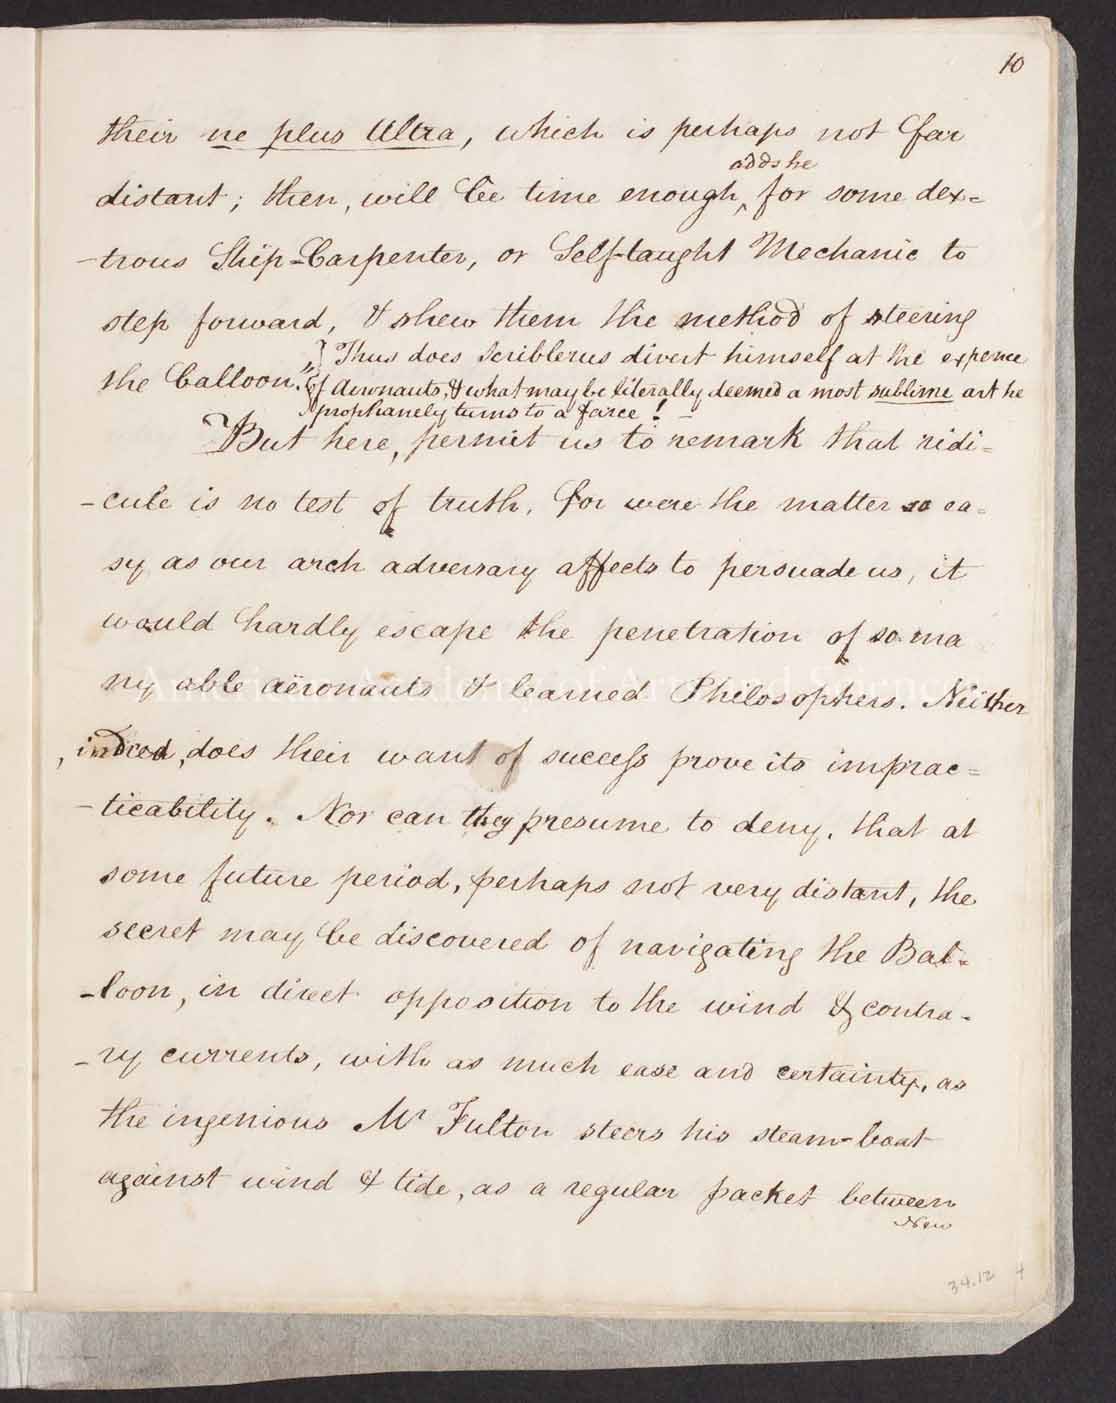 10
their ne plus Ultra, which is perhaps not far
adds he
distant; then, will be time enough ‸ for some dex=
-trous Ship-Carpenter, or Self-taught Mechanic to
step forward, & shew them the method of steering
the Balloon."
Thus does Scriblerus divert himself at the expence
of Aeronauts, & what may be literally deemed a most sublime art he
prophanely turns to a farce!
But here, permit us to remark that ridi=
-cule is no test of truth, for were the matter so ea=
sy as our arch adversary affects to persuade us, it
would hardly escape the penetration of so ma
ny able aëronauts & learned Philosophers. Neither
, indeed, does their want of success prove its imprac=
-ticability. Nor can they presume to deny, that at
some future period, perhaps not very distant, the
secret may be discovered of navigating the Bal=
-loon, in direct opposition to the wind & contra-
-ry currents, with as much ease and certainty, as
the ingenious Mr Fulton steers his steam-boat
against wind & tide, as a regular packet between
New
34.12 4